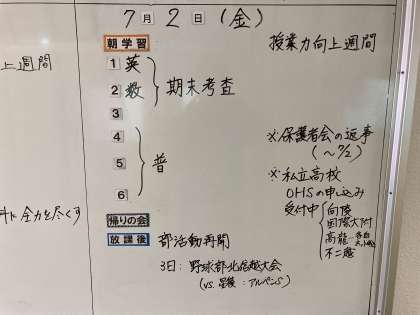 7月2日(金)
朝学習
授業力向上週間
上週間
1 英
2 数
期末考査
3
4
5 普
6
※保護者会の返事
(~7/2)
※私立高校
OHSの申込み
受付中
向陵
国際大附
高龍
不二越
に全力を尽くす
帰りの会
放課後 部活動再開
3日:野球部北信越大会
(vs.星稜:アルペンS)